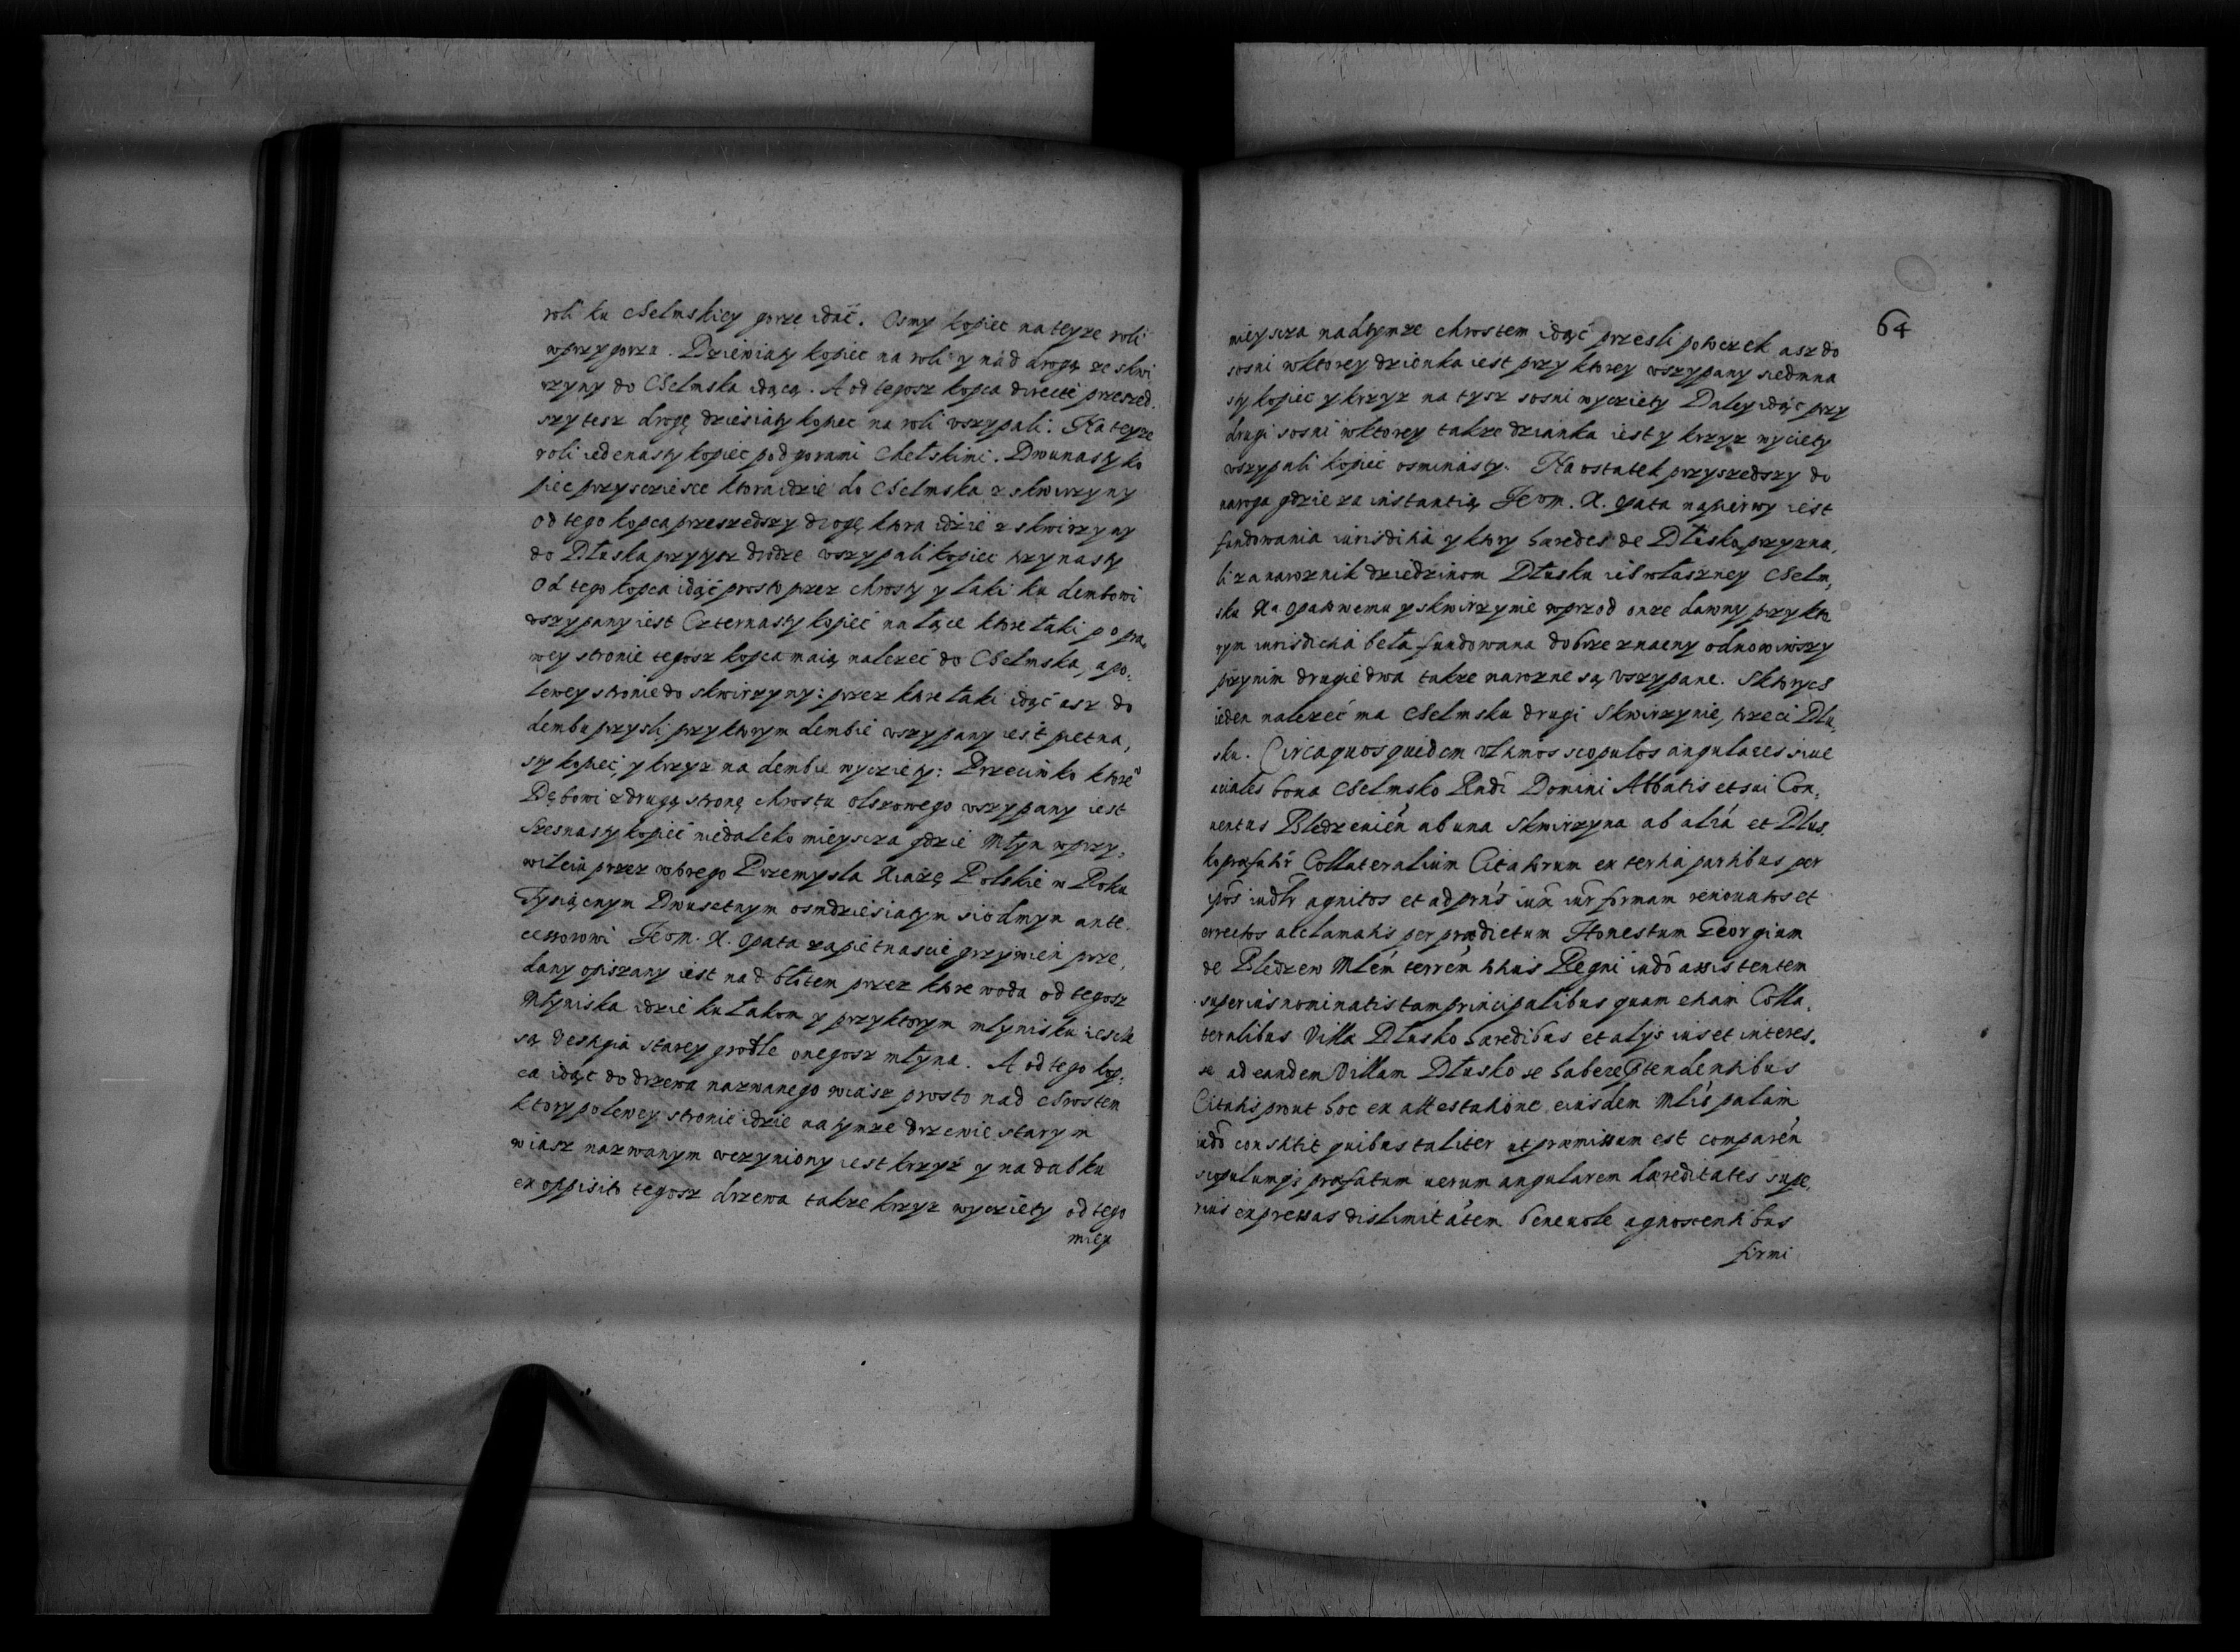 roli ku Chelmskiey gorze idać. Osmy kopiec na teyze roli
wprzygorzu. Dziewiaty kopiec na roli y nád drogą ze skwi
rzyny do Chelmska idącą. A od tegosz kopca directe przeszed,
szy tesz drogę dziesiaty kopiec na roli vszypali. Na teyze
roli iedenasty kopiec pod gorami Chełskimi. Dwunasty ko
piec przy scziesce ktora idzie do Chelmska z skwirzyny
od tego kopca przeszedszy drogę ktora idzie z skwirzyny
do Dłuska przy tysz drodze vszypali kopiec trzynasty
Od tego kopca idąć prosto przez chrosty y łaki ku dembowi
vszypany iest Czternasty kopieć na łące ktore łaki po pra,
wey stronie tegosz kopca maią nalezeć do Chelmska, a po,
lewey stronie do skwirzyny: przez ktore łaki idąć asz do
dembu przysli, przy ktorym dembie vszypany iest pietna,
sty kopieć, y krzyz na dembie wycziety: Przeciwko ktore
Dębowi z drugą stroną chrostu olszowego vszypany iest
Szesnasty kopieć niedaleko mieyscza gdzie Młyn w przy,
wileiu przez wtorego Przemysla Xiążę Polskie w Roku
Tysiącnym Dwusetnym osmdziesiatym siodmym ante,
cessorowi Jeom. X. Opata za pietnascie grzywien prze,
dany opiszany iest nad błotem przez ktore woda od tegosz
Młyniska idzie ku łakom y przy ktorym młynisku iescze
są vestigia starey grodle onegosz młyna. A od tego kop,
ca idąc do drzewa nazwanego wiasz prosto nad chrostem
ktory po lewey stronie idzie na tymze drzewie starym
wiasz nazwanym vczyniony iest krzyż y na dabku
ex oppisito tegosz drzewa takze krzyz wycziety od tego
miey
64
mieyscza nad tymze chrostem idąć przesli potoczek asz do
sosni w ktorey dzionka iest przy ktorey vszypany siedmna
sty kopiec y krzyz na tysz sosni wycziety Daley idąć przy
drugi sosni w ktorey takze dzianka iest y krzyz wyciety
vszypali kopieć osminasty. Na ostatek przyszedszy do
naroga gdzie za instantią Jeom. X. Opata napierwy iest
fundowania iurisditia y ktory haeredes de Dłusko przyzna,
li za naroznik dziedzinom Dłusku iis własney Chelm,
sku Xa Opatowemu y skwirzynie wprzod onze dawny przy kto
rym iurisdictia beła fundowana dobrze znaczny odnowiwszy
przy nim drugie dwa takze narozne są vszypane. Sktorych
ieden nalezeć ma Chelmsku drugi Skwirzynie, trzeci Dłu,
sku. Circa quos quidem vltimos scopulos angulares siue
aciales bona Chelmsko Rndi Domini Abbatis et sui Con,
uentus Bledzeuien ab una Skwirzyna ab alia et Dlus,
ko Collateralium Citatorum ex tertia partibus per
agnitos et ad formam renouatos et
errectos acclamatis per praedictum Honestum Georgium
de Bledzew Mlem terrem Regni iudo assistentem
superius nominatis tam principalibus quam etiam Colla,
teralibus Villa Dłusko haeredibus et alys ius et interes,
se ad eandem Villam Dłusko se habere ptendentibus
Citatis prout hoc ex attestatione eiusdem Mlis palam
iudo constitit quibus taliter ut praemissum est comparen
scopulumq; praefatum uerum angularem haereditates supe,
rius expressas dislimitatem beneuole agnoscentibus
firmi